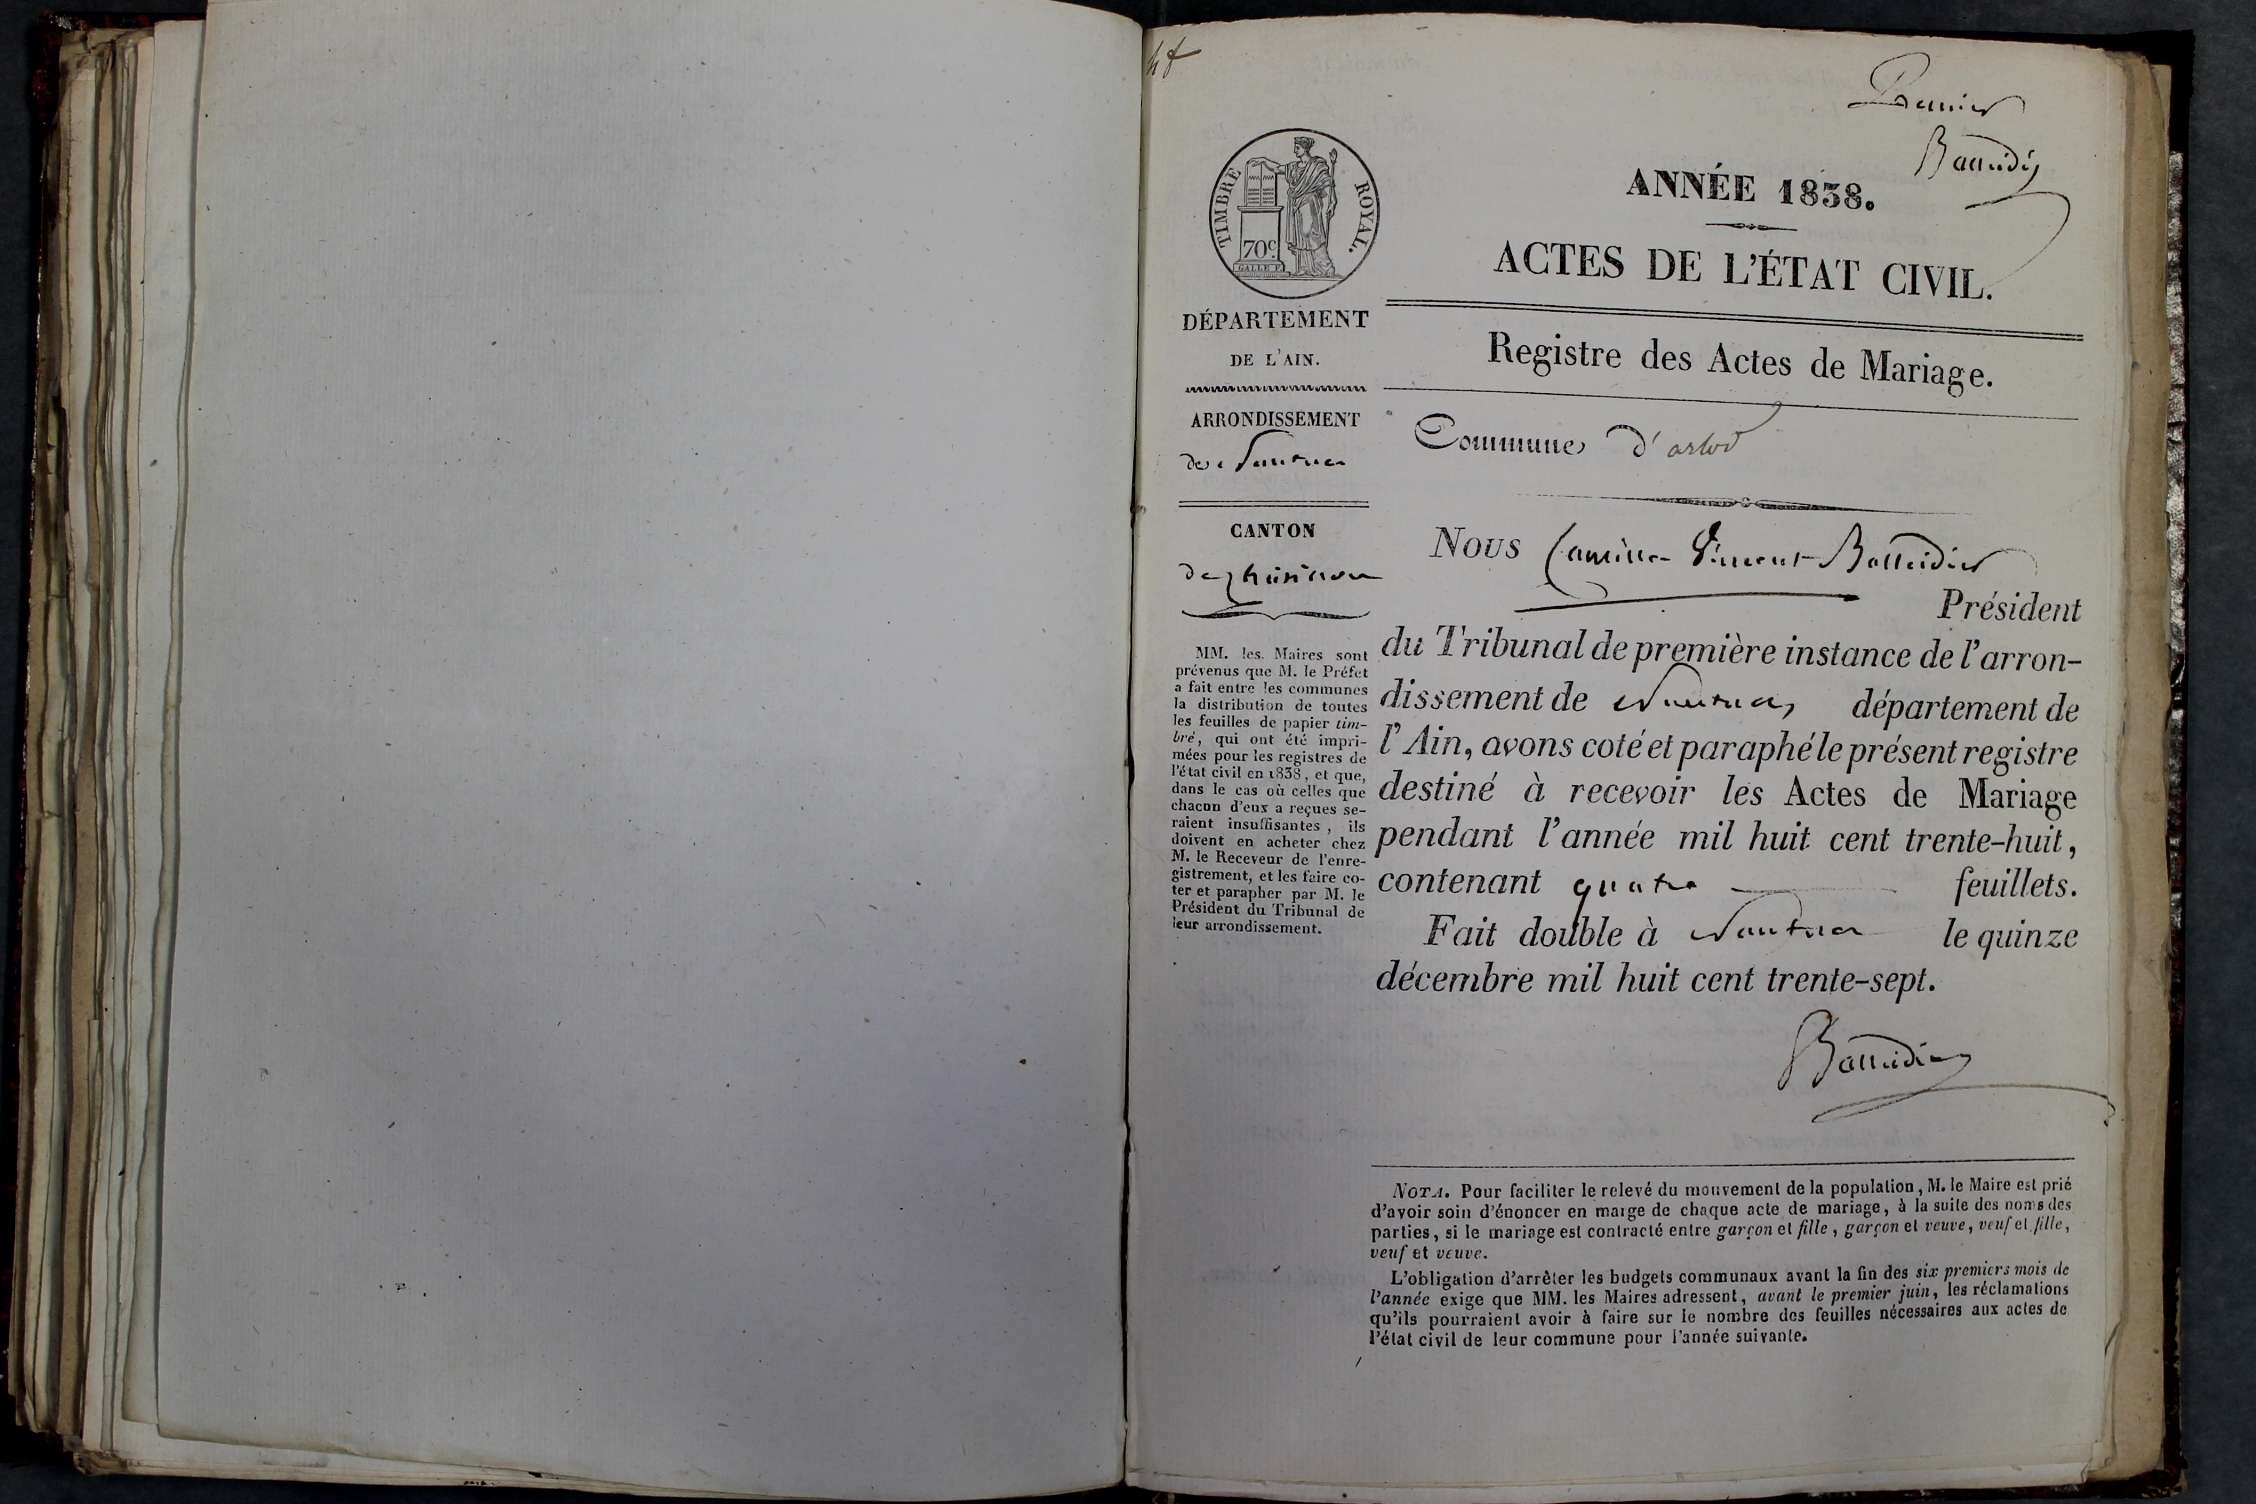 Premier
TIMBRE ROYAL.
70c.
GALLE F.
ANNÉE 1838.
ACTES DE L'ÉTAT CIVIL.
Registre des Actes de Mariage.
DÉPARTEMENT
DE L'AIN.
ARRONDISSEMENT
de Nantua
CANTON
de
MM. les Maires sont
prévenus que M. le Préfet
a fait entre les communes
la distribution de toutes
les feuilles de papier tim-
bré, qui ont été impri-
mées pour les registres de
l'état civil en 1838, et que,
dans le cas où celles que
chacun d'eux a reçues se-
raient insuffisantes, ils
doivent en acheter chez
M. le Receveur de l'enre-
gistrement, et les faire co-
ter et parapher par M. le
Président du Tribunal de
leur arrondissement.
Commune d'arlod
Nous Camille Vincent
Président
du Tribunal de première instance de l'arron-
dissement de Nantua, département de
l'Ain, avons coté et paraphé le présent registre
destiné à recevoir les Actes de Mariage
pendant l'année mil huit cent trente-huit,
contenant quatre feuillets.
Fait double à Nantua le quinze
décembre mil huit cent trente-sept.
NOTA. Pour faciliter le relevé du mouvement de la population, M. le Maire est prié
d'avoir soin d'énoncer en marge de chaque acte de mariage, à la suite des noms des
parties, si le mariage est contracté entre garçon et fille, garçon et veuve, veuf et fille,
veuf et veuve.
L'obligation d'arrêter les budgets communaux avant la fin des six premiers mois de
l'année exige que MM. les Maires adressent, avant le premier juin, les réclamations
qu'ils pourraient avoir à faire sur le nombre des feuilles nécessaires aux actes de
l'état civil de leur commune pour l'année suivante.